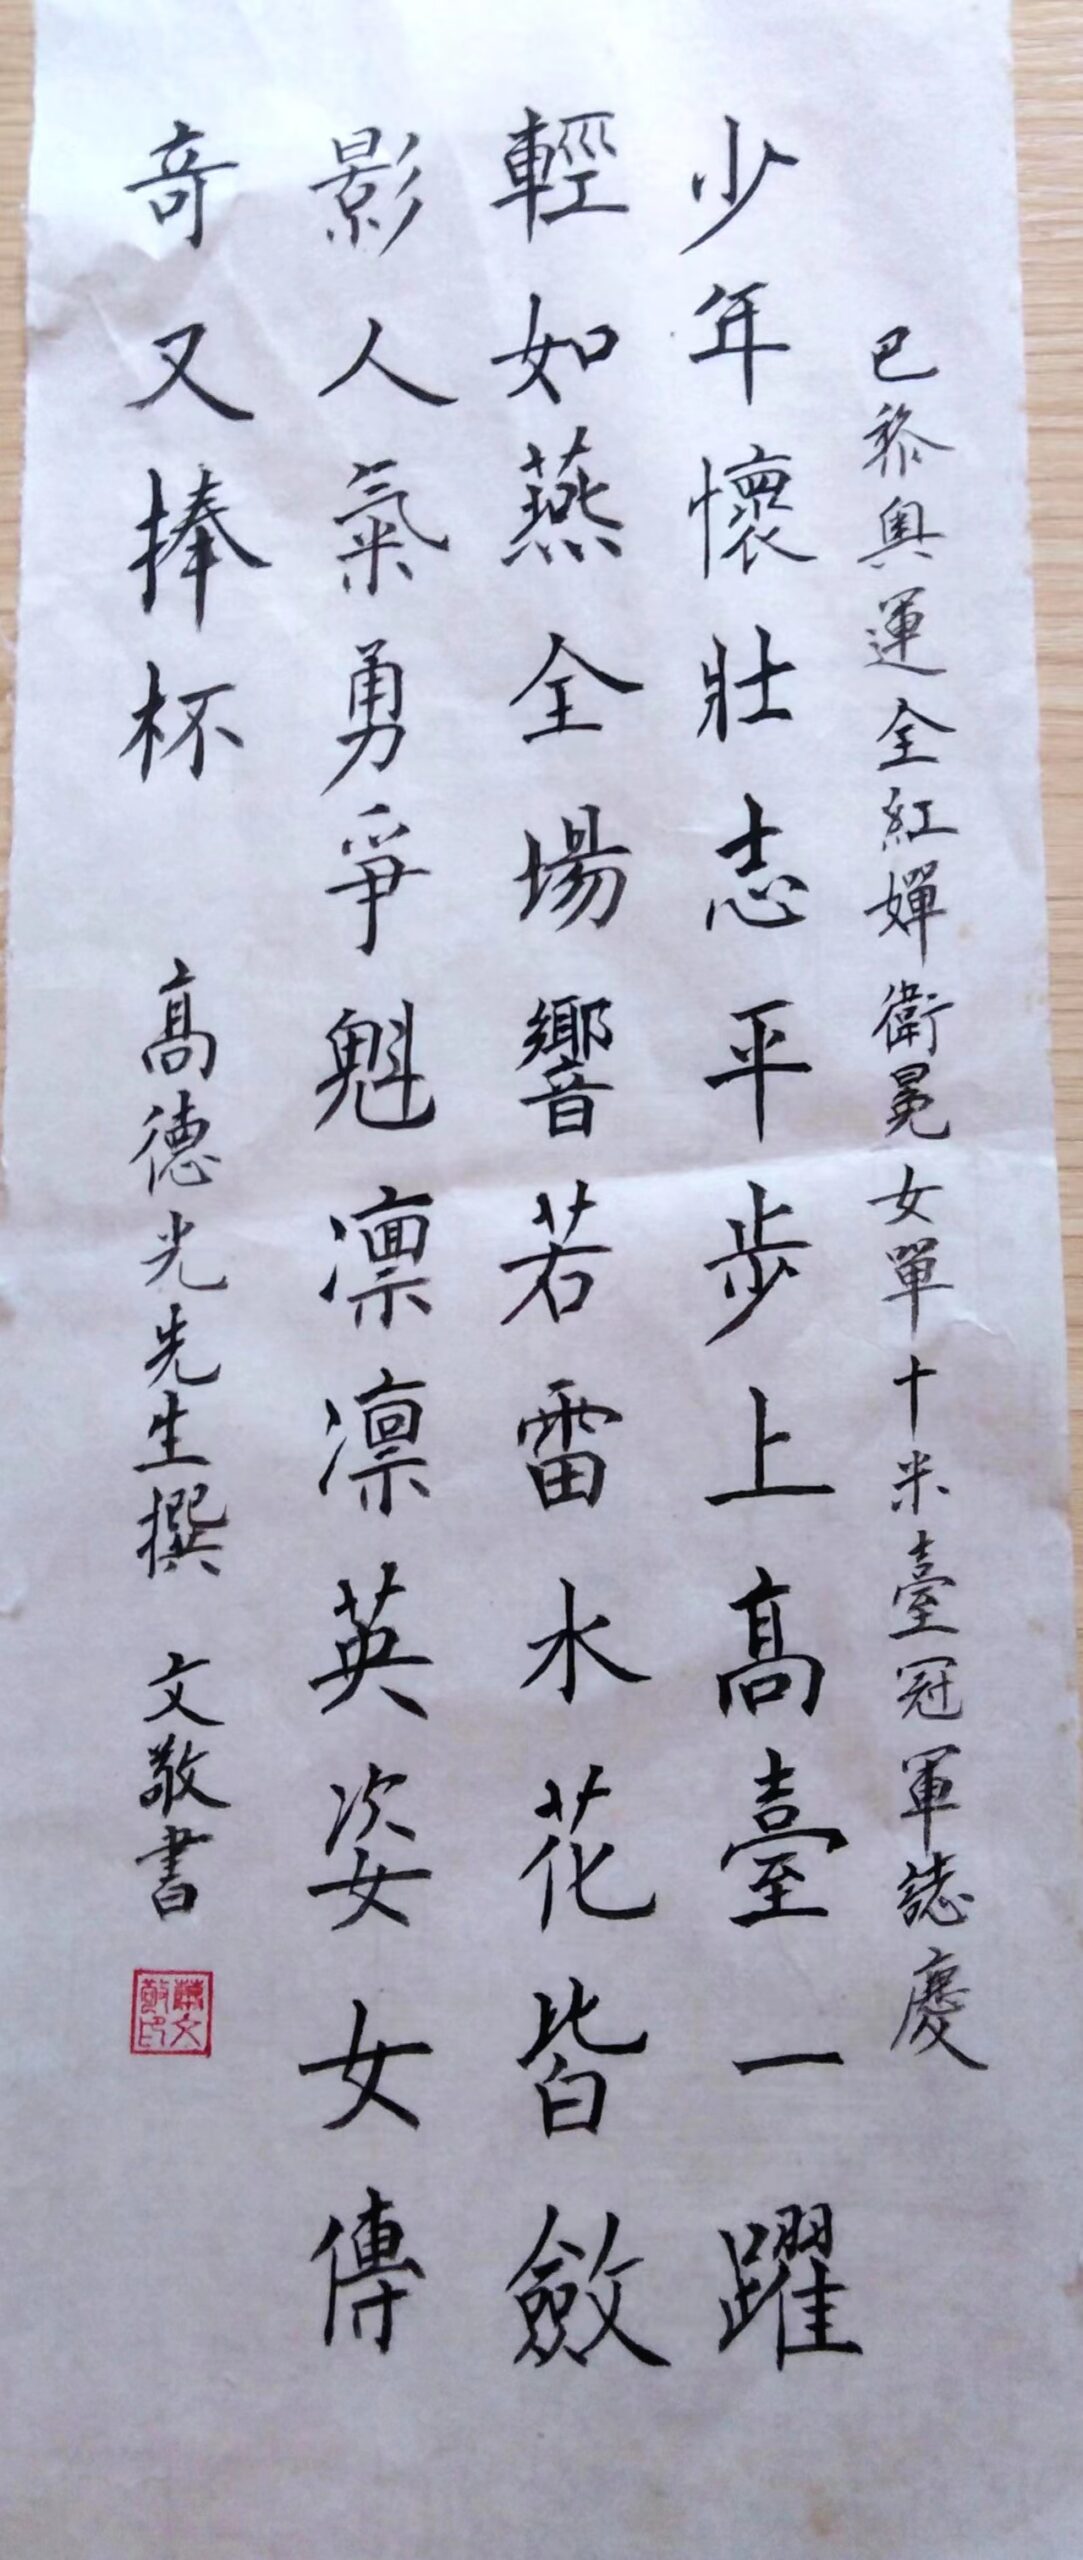 巴黎奧運全紅嬋衛冕女單十米臺冠軍誌慶
少年懷壯志平步上高臺一躍
輕如燕全場響若雷水花皆斂
影人氣勇爭魁凛凛英姿女傳
奇又捧杯
高德光先生撰 文敬書